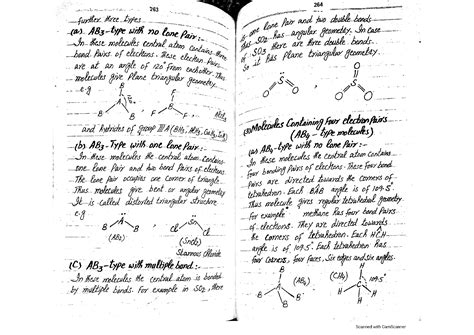 263
further three types.
(a). AB3-type with no lone Pair :-
In these molecules central atom contains three
bond Pairs of electrons. These electron Pairs
are at an angle of 120° from eachother. Thus
molecules give Plane triangular geometry.
e.g
B
A
B
B
F
B
F
F
and hybrides of group III A (BH3, AlH3, GaH3,
(b). AB3-Type with one lone Pair :-
In these molecules the central atom Contains
one lone Pair and two bond Pairs of electrons.
The lone Pair occupies one corner of triangle.
Thus molecules give bent or angular geometry
It is called distorted triangular structure
e.g
A
B
B
(AB2)
Sn
Cl
Cl
(SnCl2)
Stannous Chloride
(C) AB3-type with multiple bond :-
In these molecules the central atom is bonded
by multiple bonds. For example in SO2, there
264
is one lone Pair and two double bonds
SO2 has angular geometry. In case
of SO3 there are three double bonds.
So it has Plane triangular geometry.
S
O
O
O
S
O
O
Molecules Containing four electron pairs
(AB4 - type molecules)
(a) AB4-type with no lone Pair :-
In these molecules the central atom Contains
four bonding Pairs of electrons. These four bond
Pairs are directed towards the corners of
tetrahedron. Each BAB angle is of 109.5°
Thus molecule gives regular tetrahedral geometry.
For example methane has four bond Pairs
of electrons. They are directed towards
the corners of tetrahedron. Each HCH
angle is of 109.5°. Each tetrahedron has
four corners, four faces, six edges and six angles.
B
A
B
B
B
(AB4)
(CH4)
H
109.5°
C
H
H
H
Scanned with CamScanner